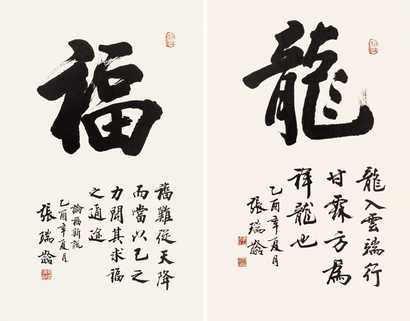 福
福難從天降
而當以己之
力開其求福
之通途
論福新說
乙酉年夏月
張瑞齡
龍
龍入雲端行
甘霖方為
祥龍也
乙酉年夏月
張瑞齡